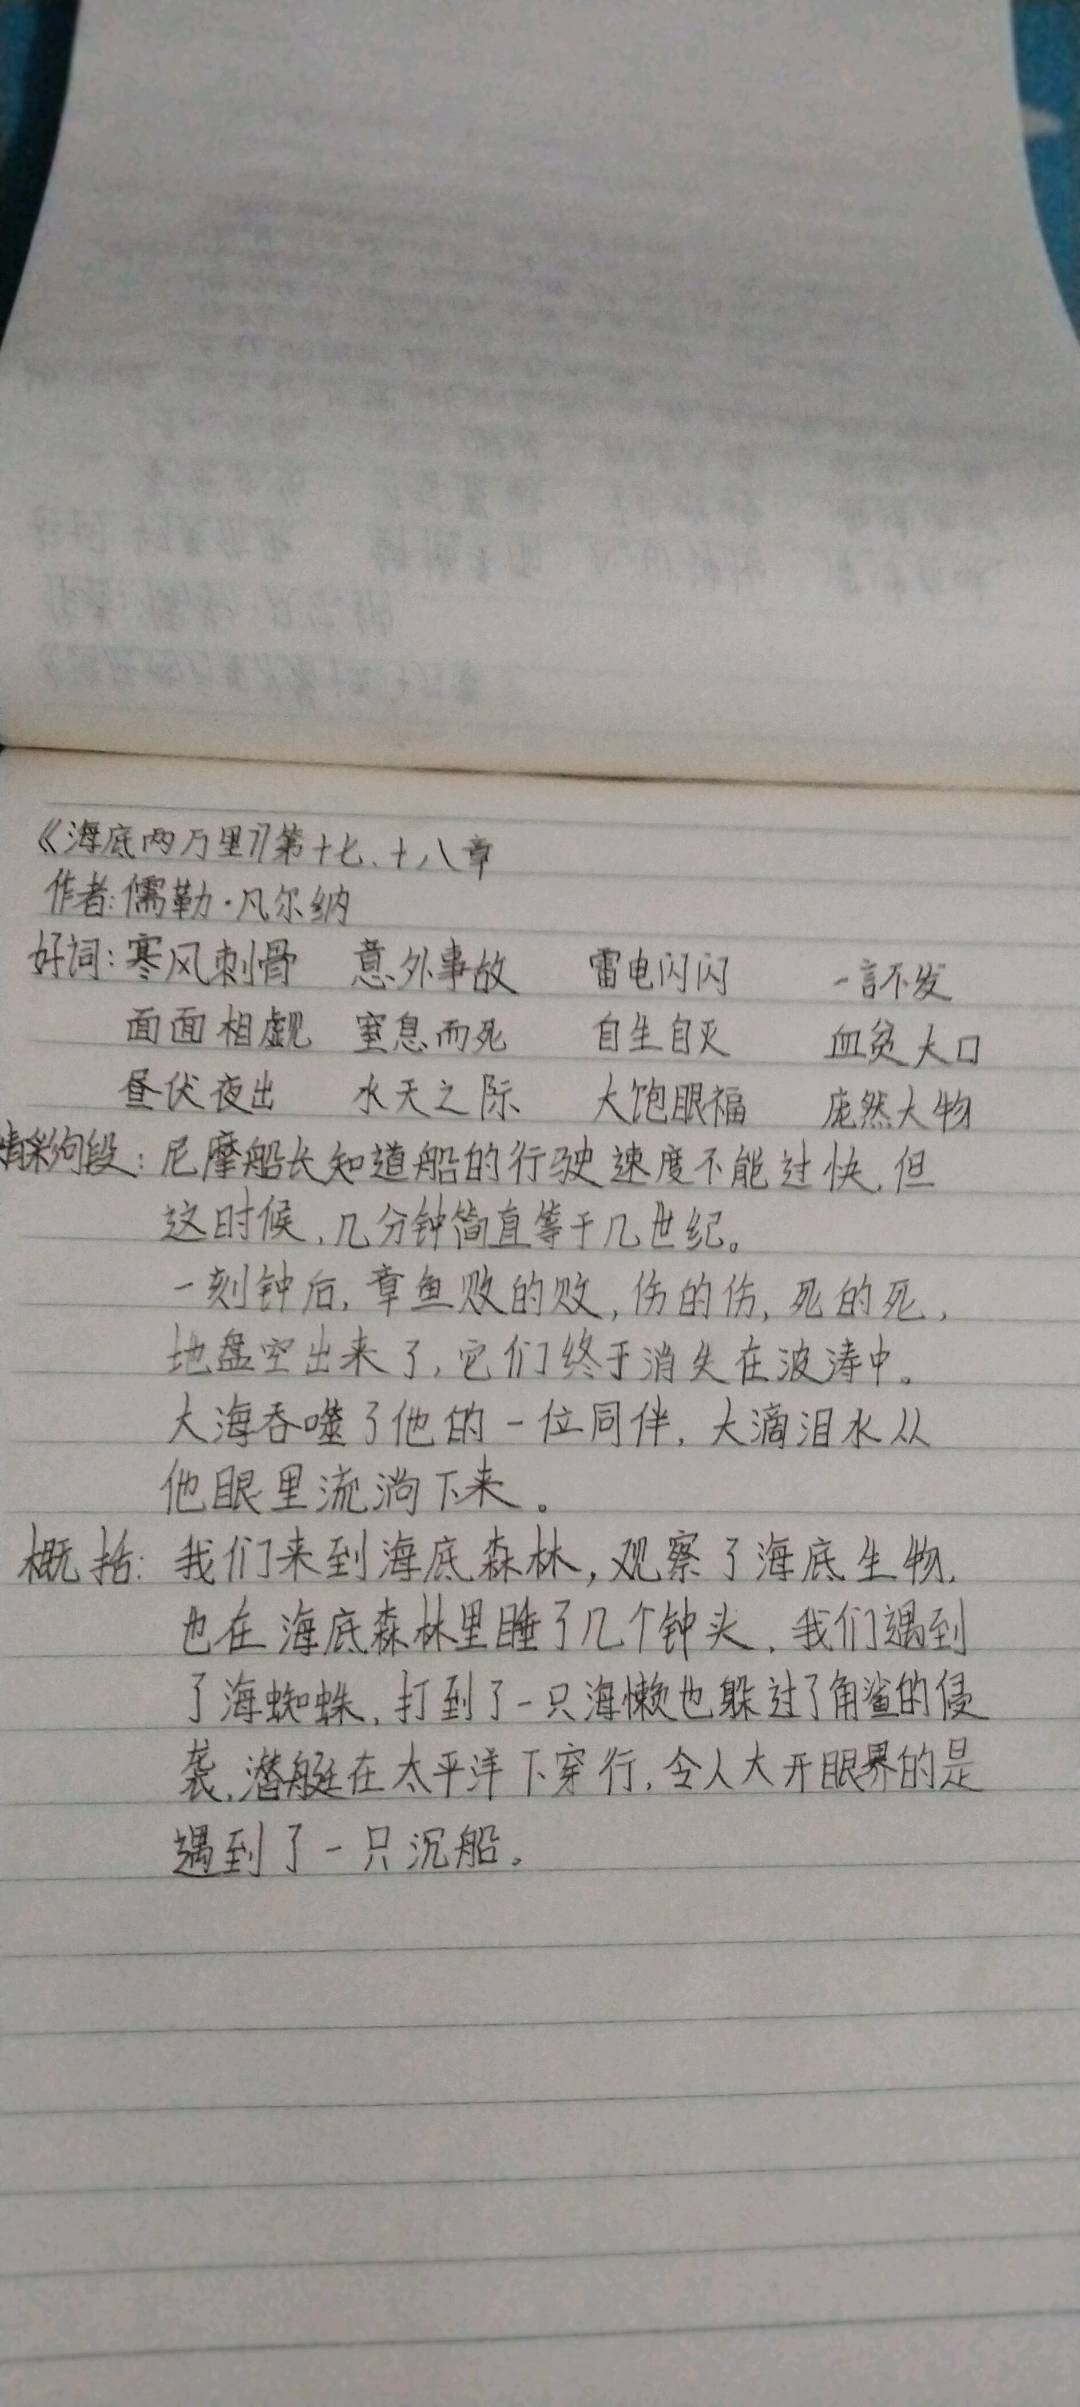 《海底两万里》第十七、十八章
作者:儒勒·凡尔纳
好词:寒风刺骨 意外事故 雷电闪闪 一言不发
面面相觑 窒息而死 自生自灭 血盆大口
昼伏夜出 水天之际 大饱眼福 庞然大物
精彩句段:尼摩船长知道船的行驶速度不能过快,但
这时候,几分钟简直等于几世纪。
一刻钟后,章鱼败的败,伤的伤,死的死,
地盘空出来了,它们终于消失在波涛中。
大海吞噬了他的一位同伴,大滴泪水从
他眼里流淌下来。
概括:我们来到海底森林,观察了海底生物,
也在海底森林里睡了几个钟头,我们遇到
了海蜘蛛,打到了一只海懒也躲过了角鲨的侵
袭,潜艇在太平洋下穿行,令人大开眼界的是
遇到了一只沉船。